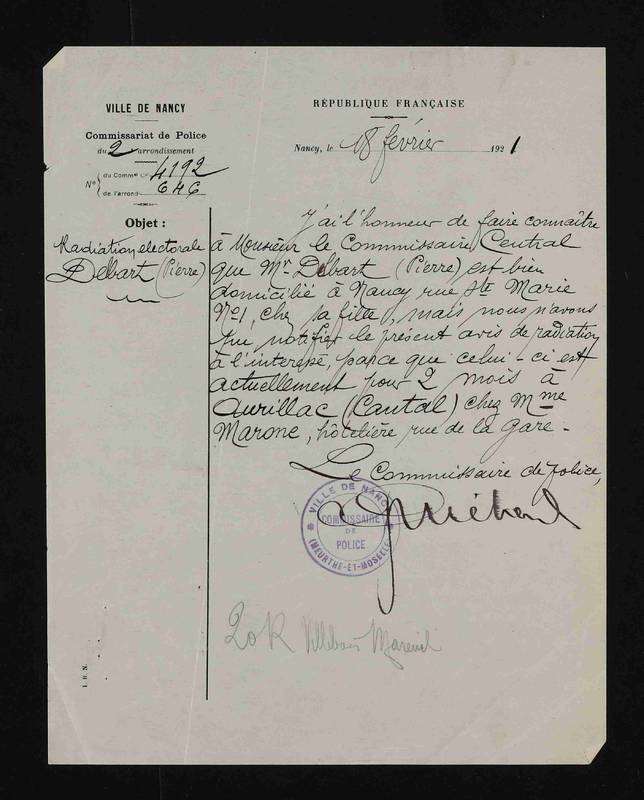 VILLE DE NANCY
Commissariat de Police
du 2 arrondissement
N° du Comm 4192
de l'arrond 646
Objet :
Radiation electorale
Débart (Pierre)
RÉPUBLIQUE FRANÇAISE
Nancy, le 18 février 1921
J'ai l'honneur de faire connaître
à Monsieur le Commissaire Central
que Mr Débart (Pierre) est bien
domicilié à Nancy rue Ste Marie
No1, chez sa fille, mais nous n'avons
pu notifier le présent avis de radiation
à l'interessé, parce que celui-ci est
actuellement pour 2 mois à
Aurillac (Cantal) chez Mme
Marone, hôtelière rue de la Gare -
Le Commissaire de police,
VILLE DE NANCY
COMMISSAIRE
DE
POLICE
(MEURTHE-ET-MOSELLE)
20 R Villebois Mareuil
I. B. N.